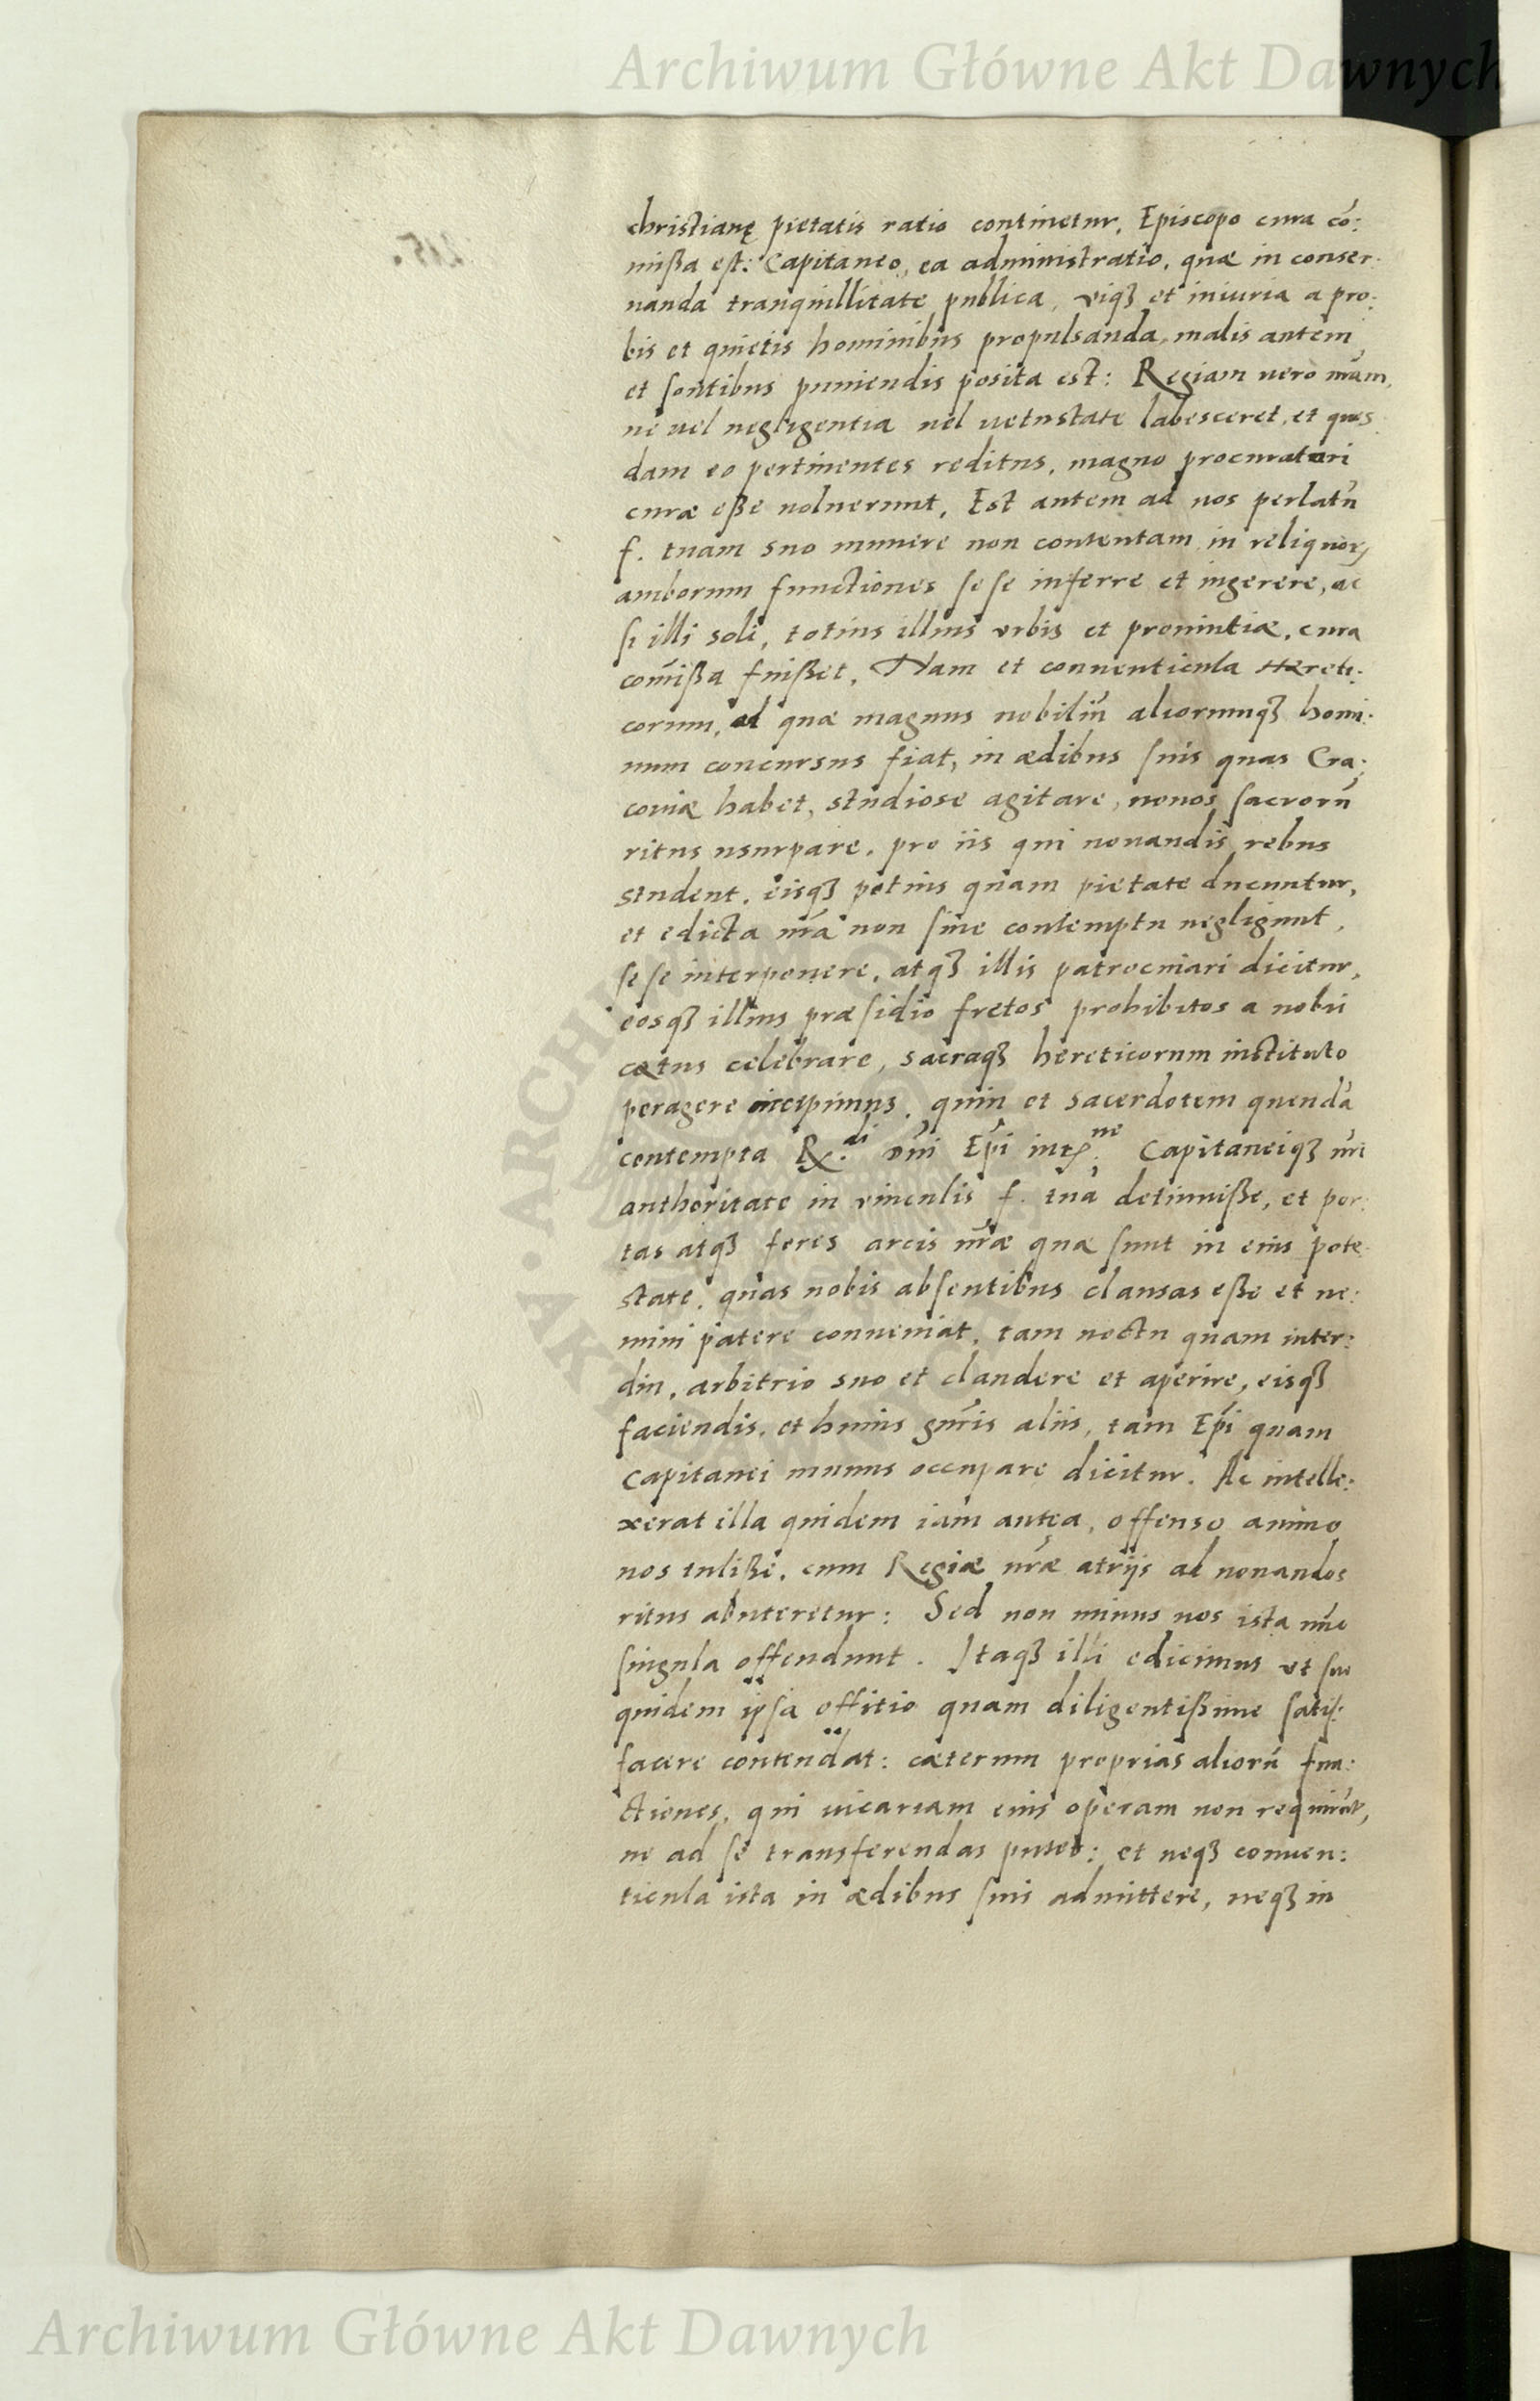 Archiwum Główne Akt Dawnych
christianę pietatis ratio continetur, Episcopo cura cō:
mißa est: Capitaneo, ea administratio, quæ in conser:
uanda tranquillitate publica, viqȝ et iniuria a pro:
bis et quietis hominibus propulsanda, malis autem
et sontibus puniendis posita est: Regiam uero nrām,
ne uel negligentia uel uetustate labesceret, et quos
dam eo pertinentes reditus, magno procuratori
curæ eße uoluerunt, Est autem ad nos perlatū
f. tuam suo munere non contentam in reliquorꝝ
amborum functiones sese inferre et ingerere, ac
si illi soli, totius illius vrbis et prouintiæ, cura
com̄ißa fuißet, Nam et conuenticula Hæreti:
corum, ad quæ magnus nobiliū aliorumqȝ homi:
num concursus fiat, in ædibus suis quas Cra:
couiæ habet, studiose agitare, nouos sacrorū
ritus usurpare, pro iis qui nouandis rebus
student, eisqȝ potius quam pietate ducuntur,
et edicta nrā non sine contemptu negligunt,
sese interponere, atqȝ illis patrocinari dicitur,
eosqȝ illius præsidio fretos prohibitos a nobis
cœtus celebrare, sacraqȝ hereticorum instituto
peragere accepimus, quin et sacerdotem quendā
contempta R.di Dn̄i Ep̄i Capitaneiqȝ nr̄i
authoritate in vinculis f. tuā detinuiße, et por:
tas atqȝ fores arcis nrāe quæ sunt in eius pote:
state, quas nobis absentibus clausas eße et ne:
mini patere conueniat, tam noctu quam inter:
diu, arbitrio suo et claudere et aperire, eisqȝ
faciendis, et huius gn̄ris aliis, tam Ep̄i quam
Capitanei munus occupare dicitur. Ac intelle:
xerat illa quidem iam antea, offenso animo
nos tuliße, cum Regiæ nrāe atrijs ad nouandos
ritus abuteretur: Sed non minus nos ista nūc
singula offendunt. Itaqȝ illi edicimus vt suo
quidem ipsa offitio quam diligentißime satis:
facere contendat: cæterum proprias aliorū fun:
ctiones, qui uicariam eius operam non requirūt,
ne ad se transferendas putet: et neqȝ conuen:
ticula ista in ædibus suis admittere, neqȝ in
Archiwum Główne Akt Dawnych